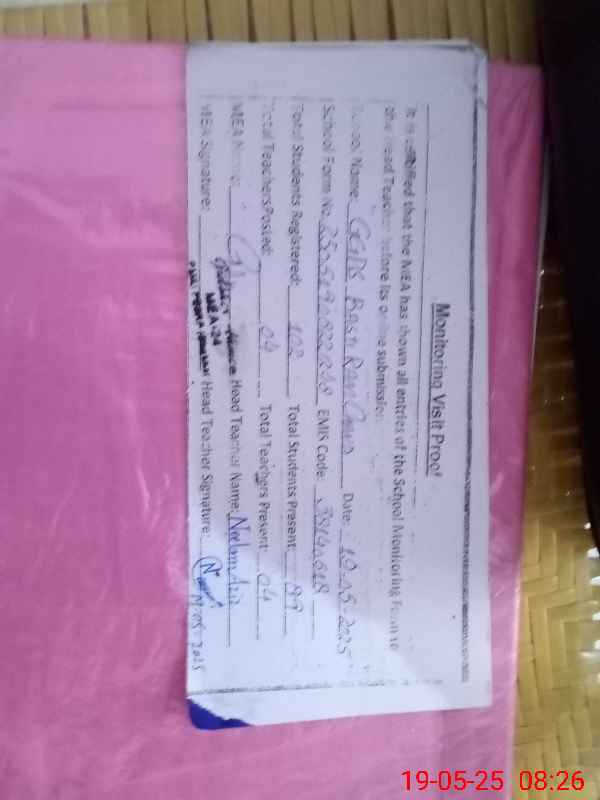 Monitoring Visit Proof
It is certified that the MEA has shown all entries of the School Monitoring Form to
the Head Teacher before its online submission
School Name: GGPS Basti Ram Date: 19-05-2025
School Form No. EMIS Code:
Total Students Registered: 102 Total Students Present: 89
Total Teachers Posted: 04 Total Teachers Present: 04
MEA Name: Head Teacher Name: Neelam Aziz
MEA Signature: Head Teacher Signature:
MEA-24
19-05-2025
19-05-25 08:26